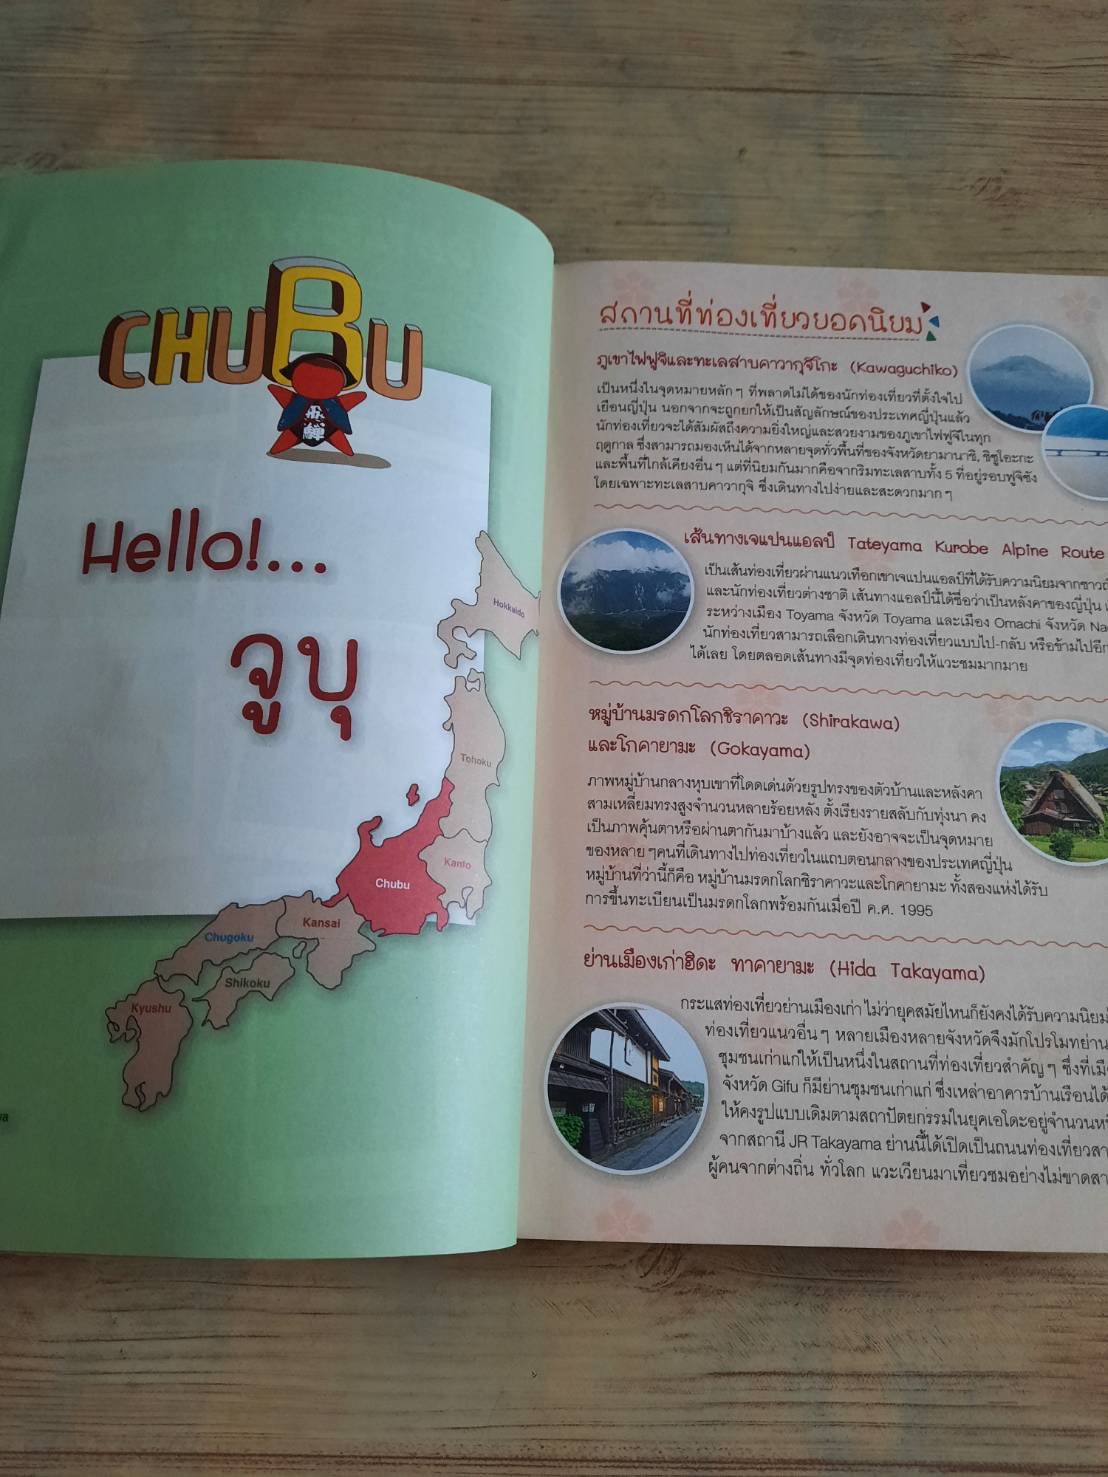 CHUBU
飛騨
Hello!...
จูบุ
Hokkaido
Tohoku
Kanto
Chubu
Kansai
Chugoku
Shikoku
Kyushu
สถานที่ท่องเที่ยวยอดนิยม
ภูเขาไฟฟูจิและทะเลสาบคาวากุจิโกะ (Kawaguchiko)
เป็นหนึ่งในจุดหมายหลัก ๆ ที่พลาดไม่ได้ของนักท่องเที่ยวที่ตั้งใจไป
เยือนญี่ปุ่น นอกจากจะถูกยกให้เป็นสัญลักษณ์ของประเทศญี่ปุ่นแล้ว
นักท่องเที่ยวจะได้สัมผัสถึงความยิ่งใหญ่และสวยงามของภูเขาไฟฟูจิในทุก
ฤดูกาล ซึ่งสามารถมองเห็นได้จากหลายจุดทั่วพื้นที่ของจังหวัดยามานาชิ, ชิซูโอะกะ
และพื้นที่ใกล้เคียงอื่น ๆ แต่ที่นิยมกันมากคือจากริมทะเลสาบทั้ง 5 ที่อยู่รอบฟูจิซัง
โดยเฉพาะทะเลสาบคาวากุจิ ซึ่งเดินทางไปง่ายและสะดวกมาก ๆ
เส้นทางเจแปนแอลป์ Tateyama Kurobe Alpine Route
เป็นเส้นท่องเที่ยวผ่านแนวเทือกเขาเจแปนแอลป์ที่ได้รับความนิยมจาก
และนักท่องเที่ยวต่างชาติ เส้นทางแอลป์นี้ได้ชื่อว่าเป็นหลังคาของญี่ปุ่น
ระหว่างเมือง Toyama จังหวัด Toyama และเมือง Omachi จังหวัด
นักท่องเที่ยวสามารถเลือกเดินทางท่องเที่ยวแบบไป-กลับ หรือข้ามไปอีก
ได้เลย โดยตลอดเส้นทางมีจุดท่องเที่ยวให้แวะชมมากมาย
หมู่บ้านมรดกโลกชิราคาวะ (Shirakawa)
และโกคายามะ (Gokayama)
ภาพหมู่บ้านกลางหุบเขาที่โดดเด่นด้วยรูปทรงของตัวบ้านและหลังคา
สามเหลี่ยมทรงสูงจำนวนหลายร้อยหลัง ตั้งเรียงรายสลับกับทุ่งนา คง
เป็นภาพคุ้นตาหรือผ่านตากันมาบ้างแล้ว และยังอาจจะเป็นจุดหมาย
ของหลาย ๆคนที่เดินทางไปท่องเที่ยวในแถบตอนกลางของประเทศญี่ปุ่น
หมู่บ้านที่ว่านี้ก็คือ หมู่บ้านมรดกโลกชิราคาวะและโกคายามะ ทั้งสองแห่งได้รับ
การขึ้นทะเบียนเป็นมรดกโลกพร้อมกันเมื่อปี ค.ศ. 1995
ย่านเมืองเก่าฮิดะ ทาคายามะ (Hida Takayama)
กระแสท่องเที่ยวย่านเมืองเก่า ไม่ว่ายุคสมัยไหนก็ยังคงได้รับความนิยม
ท่องเที่ยวแนวอื่น ๆ หลายเมืองหลายจังหวัดจึงมักโปรโมทย่าน
ชุมชนเก่าแก่ให้เป็นหนึ่งในสถานที่ท่องเที่ยวสำคัญ ๆ ซึ่งที่
จังหวัด Gifu ก็มีย่านชุมชนเก่าแก่ ซึ่งเหล่าอาคารบ้านเรือนได้
ให้คงรูปแบบเดิมตามสถาปัตยกรรมในยุคเอโดะอยู่จำนวน
จากสถานี JR Takayama ย่านนี้ได้เปิดเป็นถนนท่องเที่ยว
ผู้คนจากต่างถิ่น ทั่วโลก แวะเวียนมาเที่ยวชมอย่างไม่ขาด